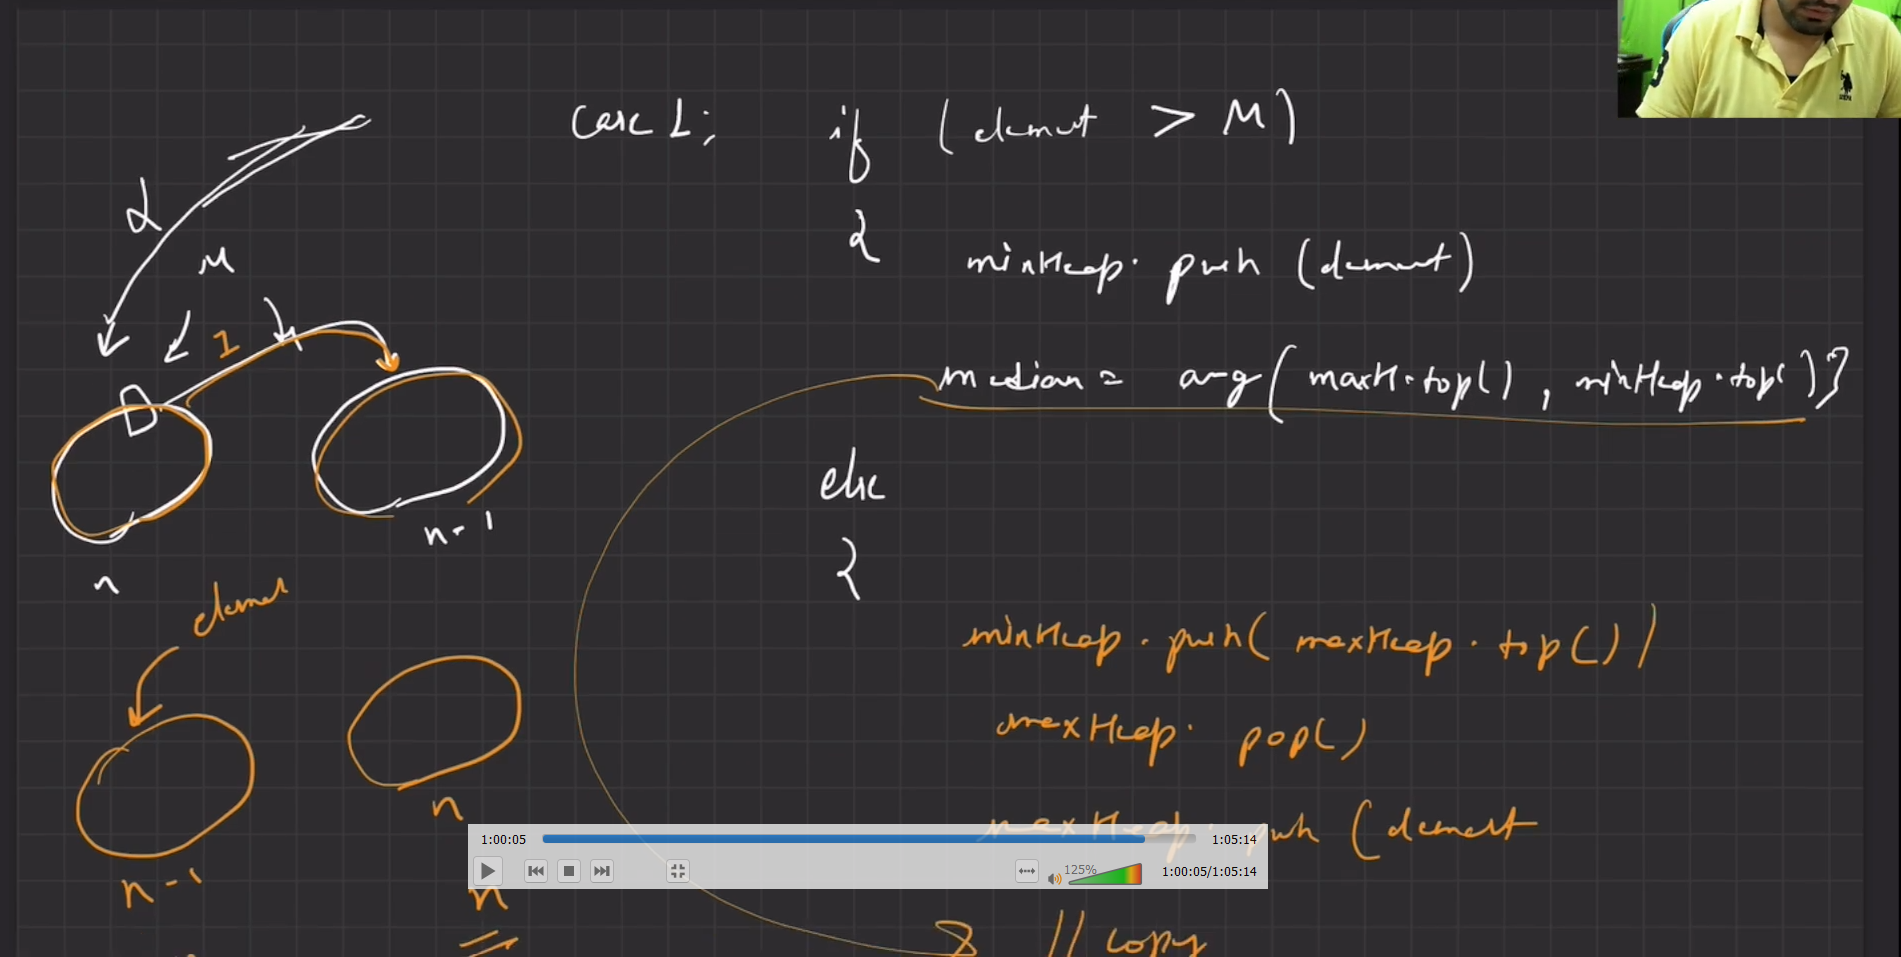 Case 1:
if (element > M)
{
minHeap. push (element)
median = avg(maxH.top(), minHeap.top()) }
else
{
minHeap. push( maxHeap. top())
maxHeap. pop()
maxHeap. push (element
} // copy
M
1
n
n-1
element
n-1
n
n
1:00:05
1:05:14
125%
1:00:05/1:05:14